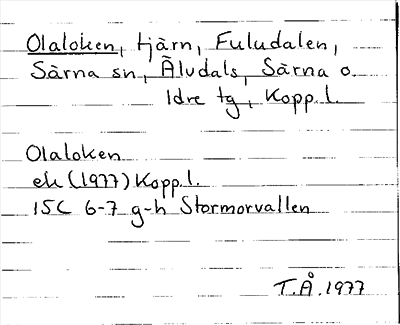 Olaloken, tjärn, Fuludalen,
Särna sn, Älvdals, Särna o.
Idre tg, Kopp. l.
Olaloken
ek (1977) Kopp. l.
15C 6-7 g-h Stormorvallen
T.Å. 1977